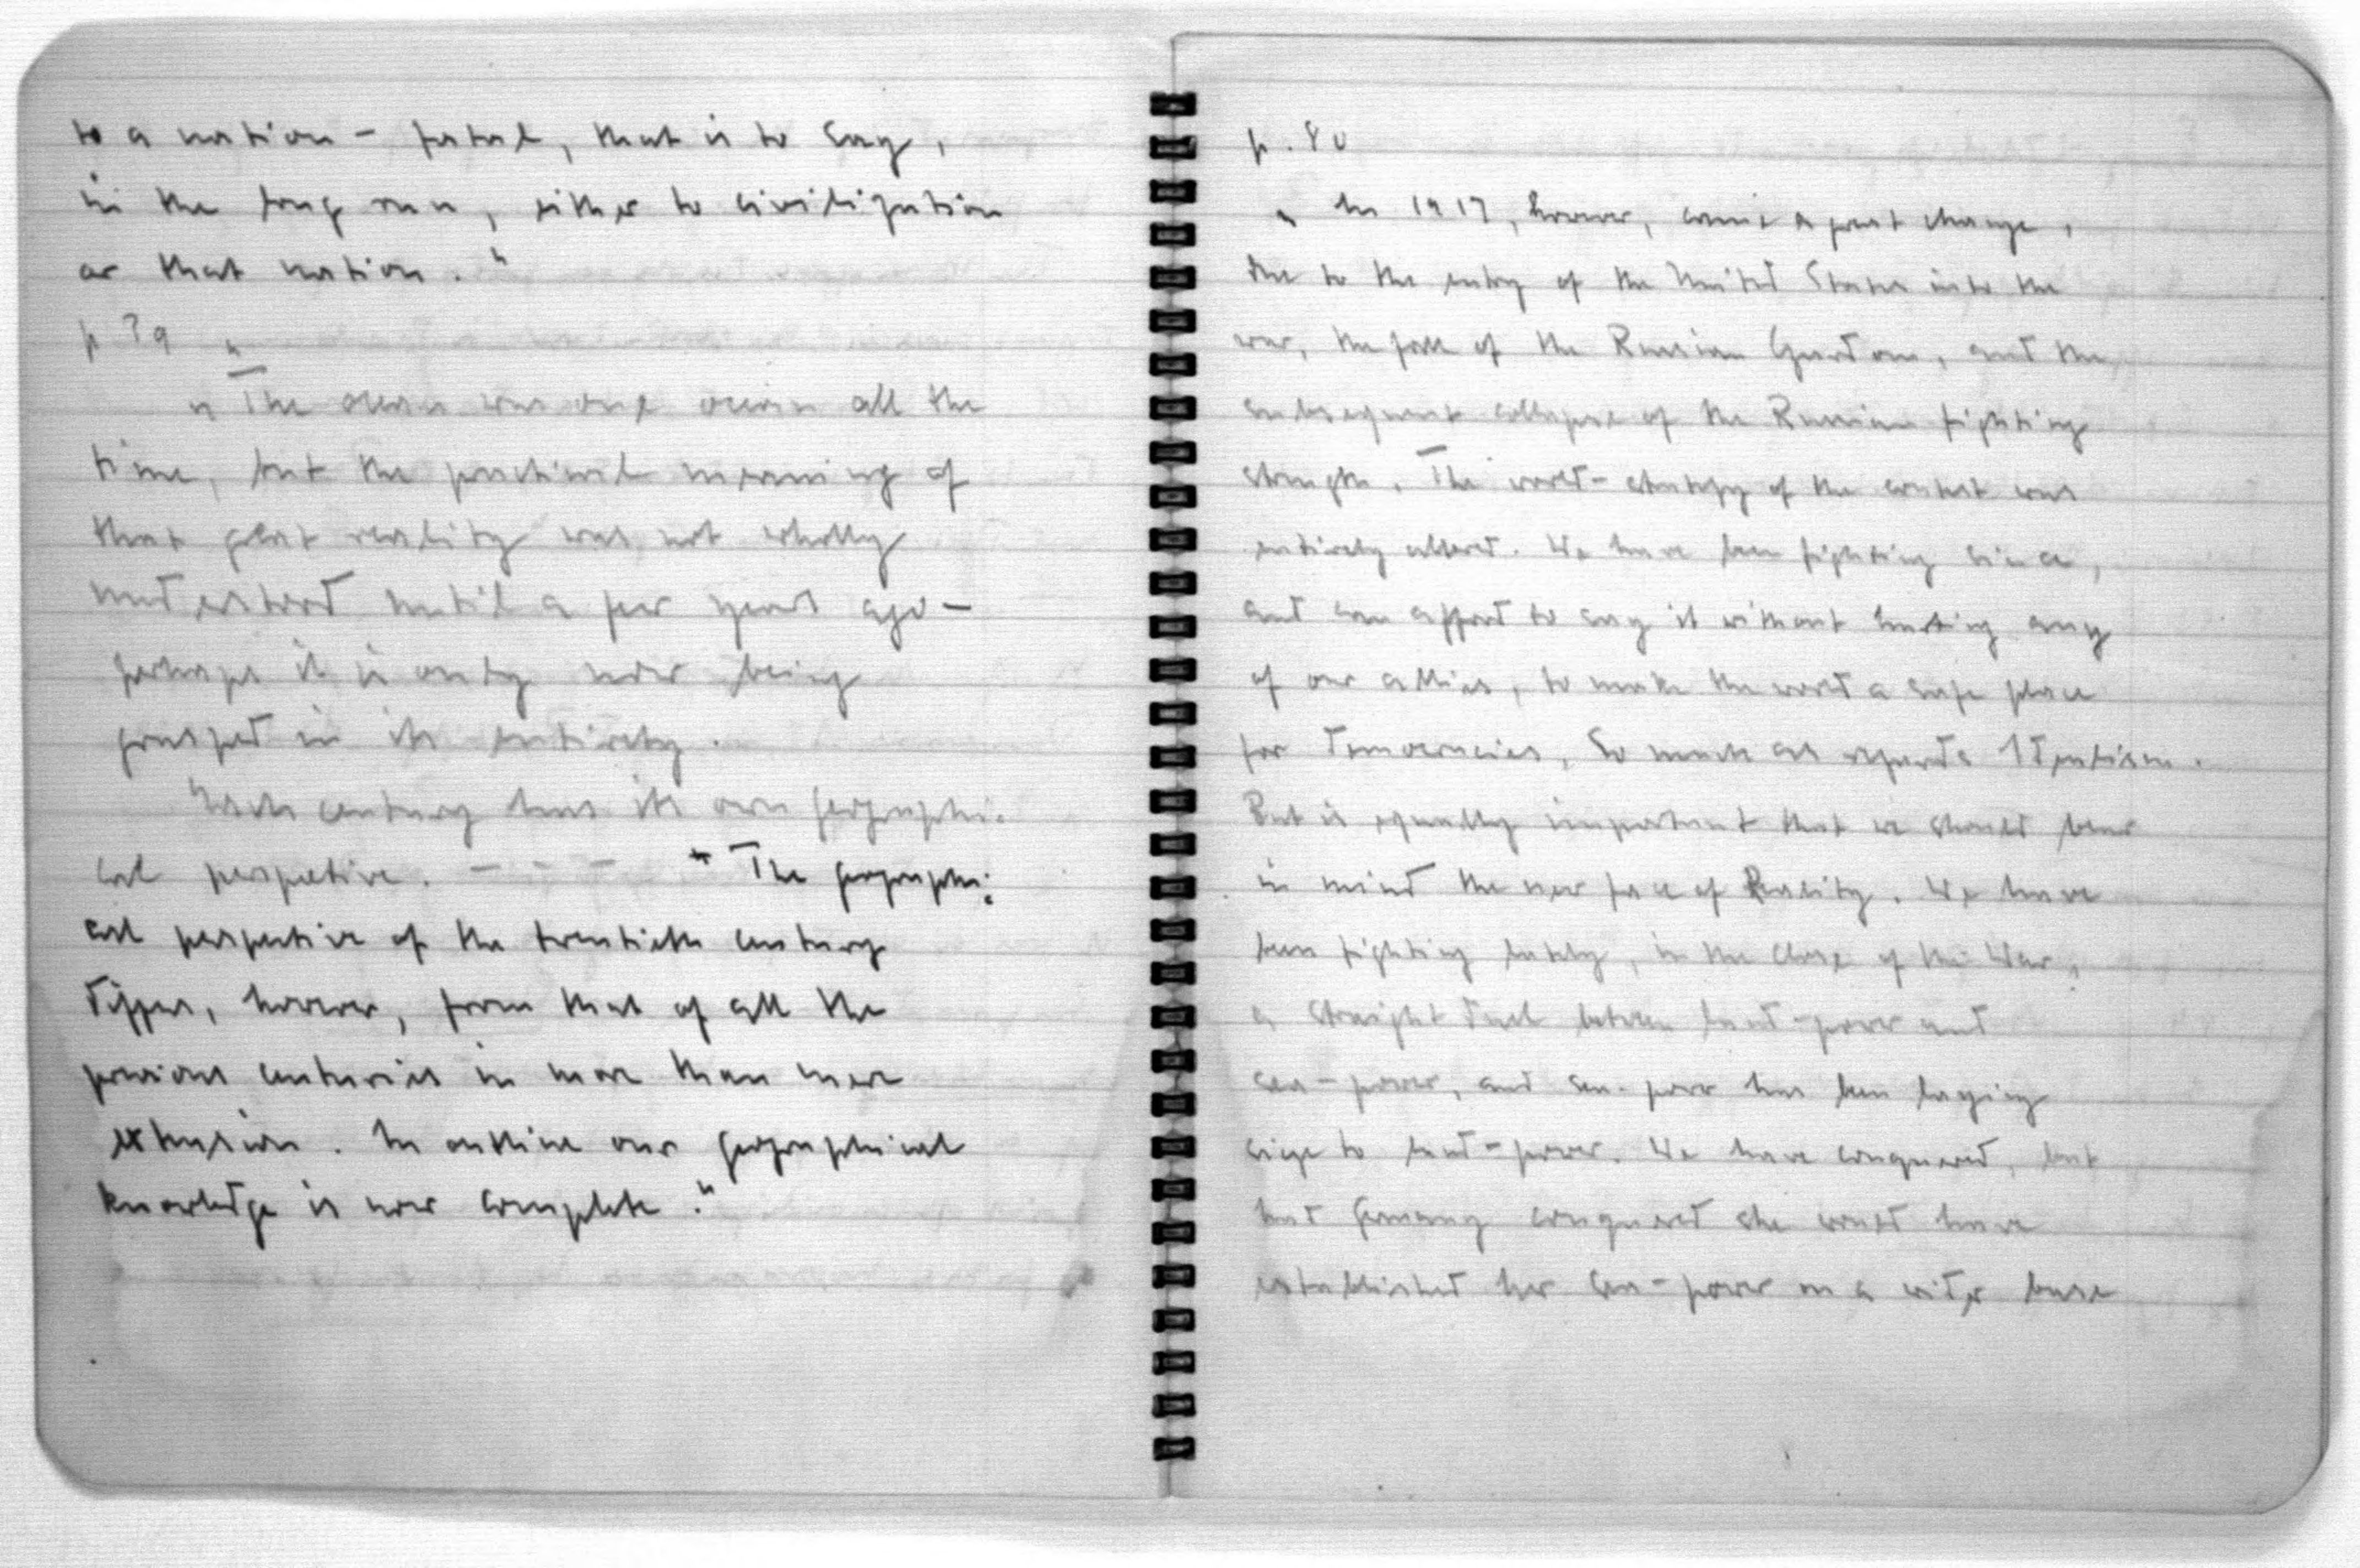 to a nation – fatal, that is to say,
in the long run, either to civilization
or that nation."
p 39
" The ocean was one ocean all the
time, but the practical meaning of
that great reality was not wholly
understood until a few years ago –
perhaps it is only now being
grasped in its entirety.
Each century has its own geographi-
cal perspective. – – – " The geographi-
cal perspective of the twentieth century
differs, however, from that of all the
previous centuries in more than mere
extension. In outline our geographical
knowledge is now complete."
p.
" In 1917, however, came a great change,
due to the entry of the United States into the
war, the fall of the Russian, and the
subsequent collapse of the Russian fighting
strength. The world-strategy of the contest was
entirely altered. We have been fighting since,
and can afford to say it without hurting any
of our allies, to make the world a safe place
for democracies. So much as regards Idealism.
But is equally important that we should bear
in mind the new face of Reality. We have
been fighting lately, in the close of the War,
a straight duel between land-power and
sea-power, and sea-power has been laying
siege to land-power. We have conquered, but
had Germany conquered she would have
established her sea-power on a wider base